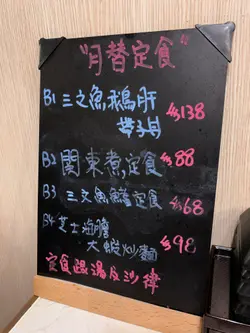 "月替定食"
B1 三文魚鵝肝 $138
B2 関東煮定食 $88
B3 三文魚 定食 $68
B4 芝士海膽 $98
大蜆炒麵
定食跟湯及沙律